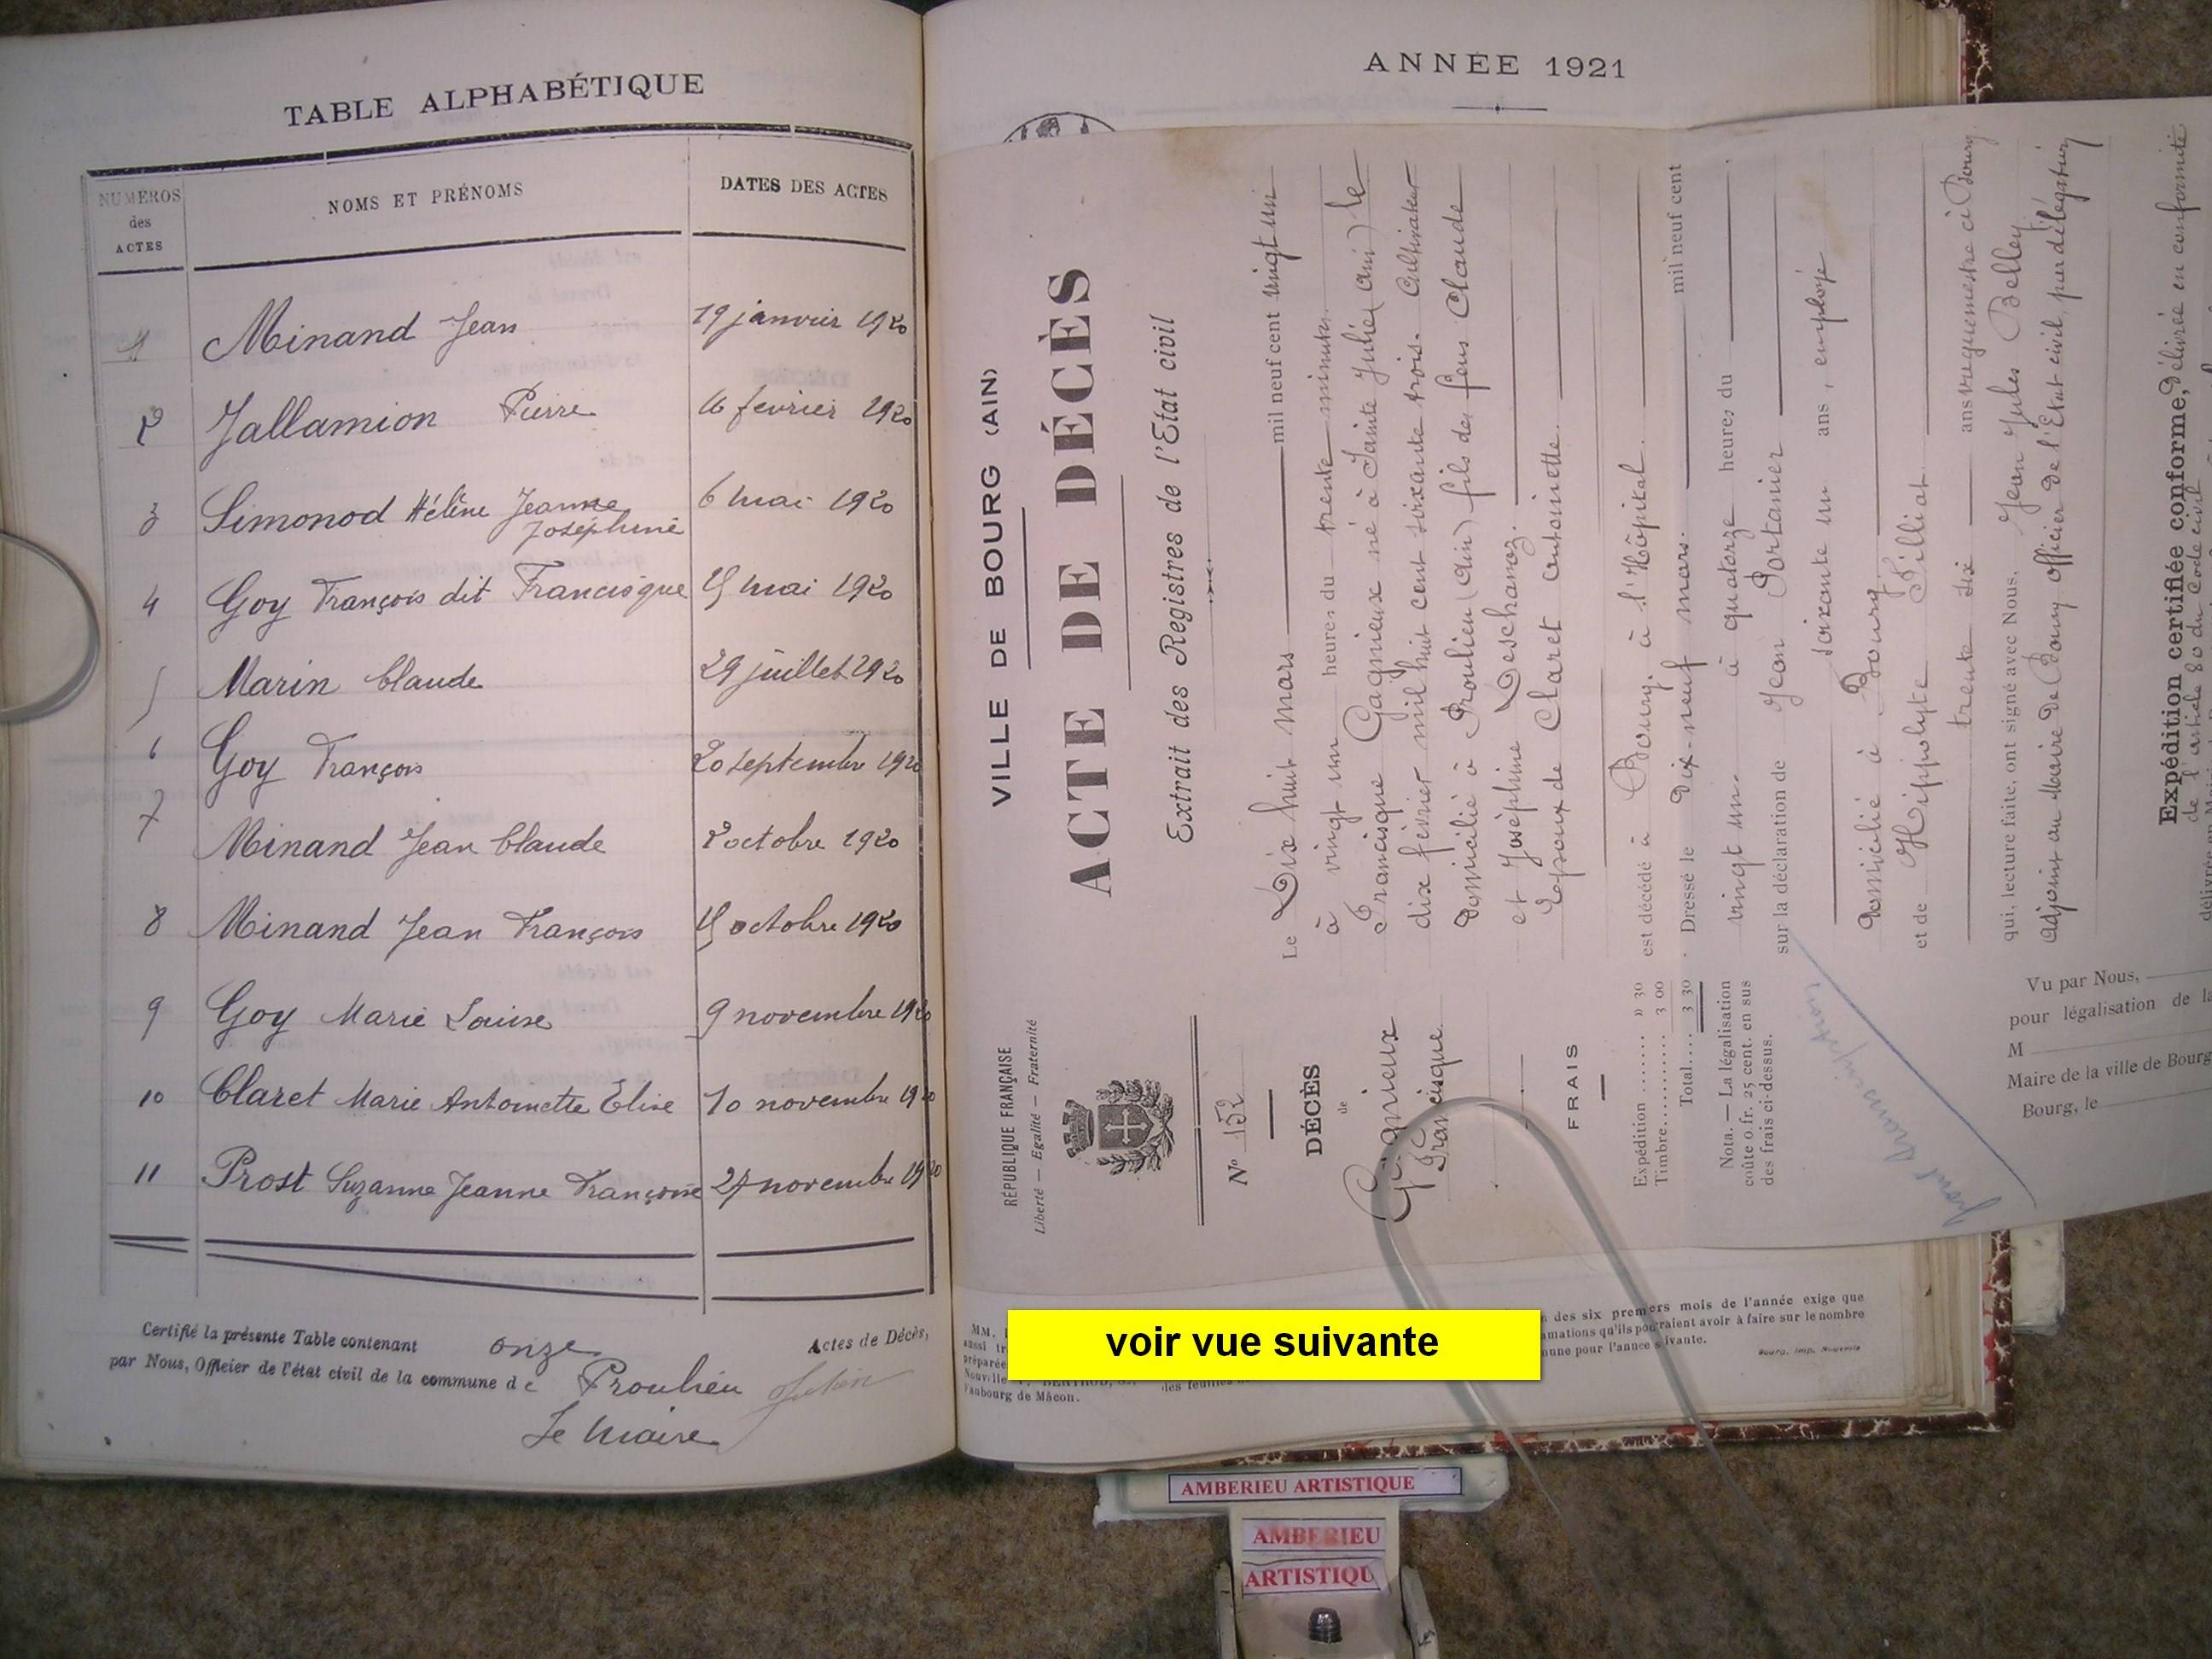 TABLE ALPHABÉTIQUE
NUMÉROS des ACTES
NOMS ET PRÉNOMS
DATES DES ACTES
1 Minand Jean 19 janvier 1920
2 Jallamion Pierre 16 fevrier 1920
3 Simonod Hélène Jeanne Joséphine 6 mai 1920
4 Goy François dit Francisque 15 mai 1920
5 Marin Claude 29 juillet 1920
6 Goy François 20 septembre 1920
7 Minand Jean Claude 2 octobre 1920
8 Minand Jean François 15 octobre 1920
9 Goy Marie Louise 9 novembre 1920
10 Claret Marie Antoinette Elise 10 novembre 1920
11 Prost Suzanne Jeanne Françoise 27 novembre 1920
Certifié la présente Table contenant onze Actes de Décès,
par Nous, Officier de l'état civil de la commune de Proulieu
Le Maire
ANNÉE 1921
RÉPUBLIQUE FRANÇAISE
Liberté — Egalité — Fraternité
VILLE DE BOURG (AIN)
ACTE DE DÉCÈS
Extrait des Registres de l'Etat civil
N° 152
DÉCÈS
de
Gagnieux
Francisque
FRAIS
Expédition ........ » 30
Timbre ........... 3 00
Total ..... 3 30
Nota. — La légalisation
coûte 0 fr. 25 cent. en sus
des frais ci-dessus.
Le Dix huit mars mil neuf cent vingt un
à vingt un heures du trente minutes
Francisque Gagnieux né à Sainte Julie (ain) le
dix février mil huit cent soixante trois. Cultivateur
domicilié à Proulieu (Ain) fils de feus Claude
et Joséphine Deschanoz.
Epoux de Claret Antoinette.
est décédé à Bourg, à l'Hôpital.
Dressé le Dix-neuf mars. mil neuf cent
vingt un. à quatorze heures du
sur la déclaration de Jean Portanier
soixante un ans, employé
domicilié à Bourg
et de Hippolyte Pilliat.
trente six ans
qui, lecture faite, ont signé avec Nous. Jean Jules Belley
adjoint au Maire de Bourg officier de l'Etat civil, par délégation
Expédition certifiée conforme, délivrée en conformité
de l'article 80 du Code civil
Vu par Nous,
pour légalisation de la
M
Maire de la ville de Bourg
Bourg, le
MM.
aussi
préparée
Faubourg de Mâcon.
des feuilles
des six premiers mois de l'année exige que
pourraient avoir à faire sur le nombre
pour l'année suivante.
Bourg, Imp. Nouvelle
voir vue suivante
AMBERIEU ARTISTIQUE
AMBERIEU
ARTISTIQU